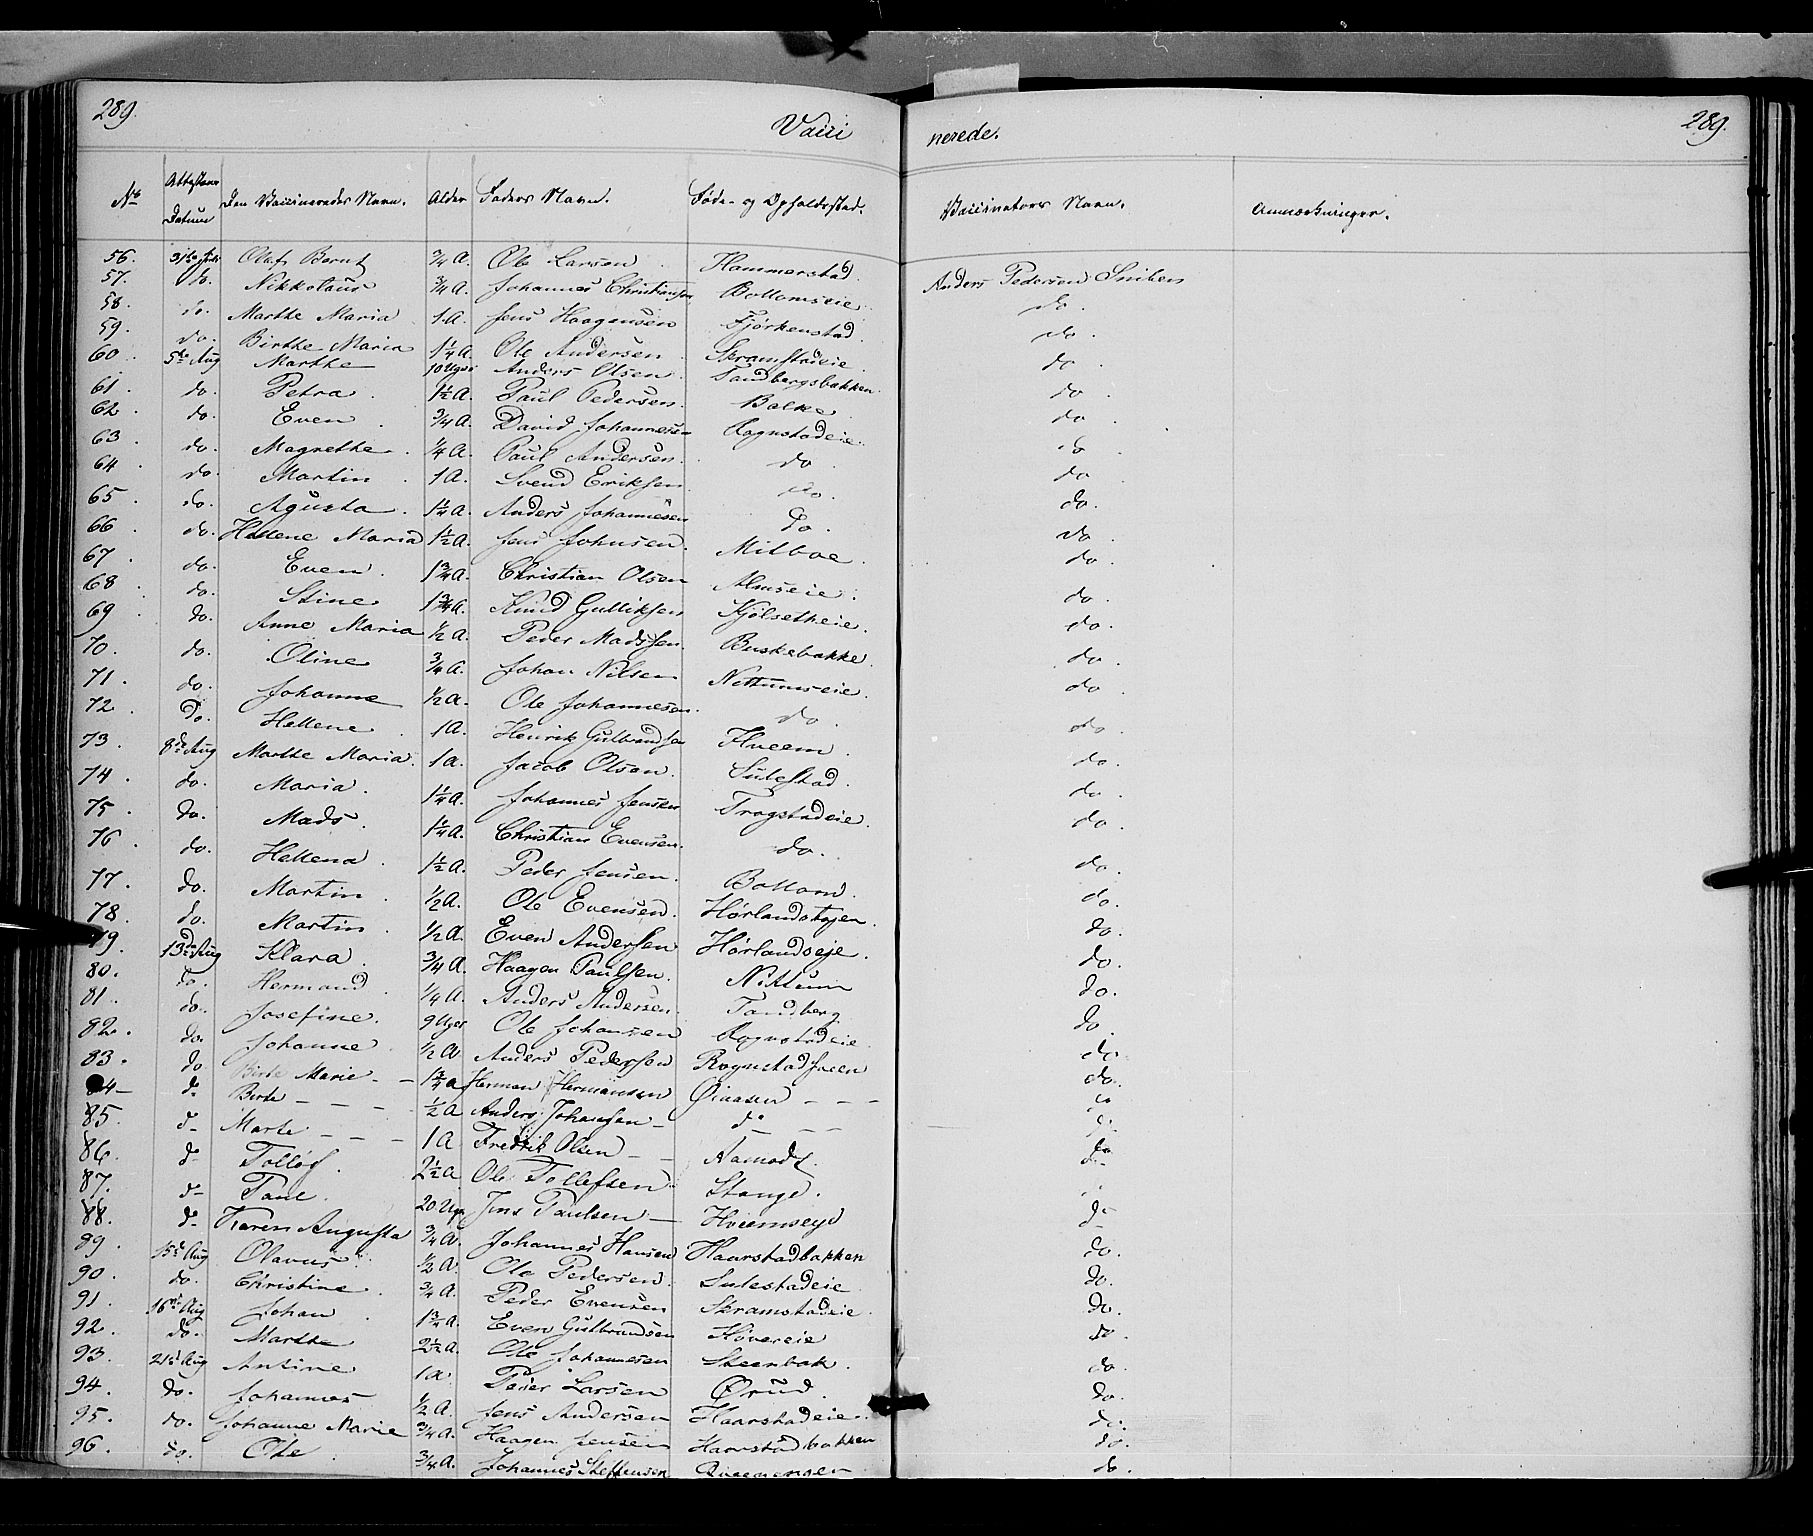 289. Vacci nerede. 289.
No Attestens Datum Den Vaccineredes Navn. Alder Faders Navn. Føde- og Opholdssted. Vaccinatørs Navn. Anmærkninger.
56. Olaf Bernt 3/4 A. Ole Larsen Hammerstad Anders Pedersen
57. do. Nikkolaus 3/4 A. Johannes Christiansen Bottomseie do.
58. do. Marthe Maria 1 A. Jens Haagensen Fjørkenstad do.
59. do. Birthe Maria 1 1/4 A. Ole Andersen Skramstadeie do.
60. 5te Aug Marthe 10 Uger Anders Olsen Tandbergsbakken do.
61. do. Petra 1 1/2 A. Paul Pedersen. Balke do.
62. do. Even 3/4 A. David Johannesen Rognstadeie. do.
63. do. Magnethe 1/4 A. Paul Andersen. do do.
64. do. Martin 1 A. Svend Eriksen do. do.
65. do. Agusta 1 1/4 A. Anders Johannesen do. do.
66. do. Hellene Maria 1 1/2 A. Jens Johnsen. Milboe do.
67. do. Even. 1 3/4 A. Christian Olsen Almseie. do.
68. do. Stine 1 3/4 A. Knud Gulliksen Kjølsetheie. do.
69. do. Anne Maria 1/2 A. Peder Madssen. Buskebakke. do.
70. do. Oline 3/4 A. Johan Nilsen Nettumseie. do.
71. do. Johanne 1/2 A. Ole Johannesen. do. do.
72. do. Hellene 1 A. Henrik Gulbrandsen Hveem. do.
73. 8de Aug Marthe Maria. 1 A. Jacob Olsen. Sulestad. do.
74. do. Maria. 1 1/4 A. Johannes Jensen Trogstadeie. do.
75. do. Mads. 1 1/4 A. Christian Evensen. do. do.
76. do. Hellena 1 1/2 A. Peder Jensen. Bottom. do.
77. do. Martin 1/2 A. Ole Evensen. do.
78. do. Martin 1/2 A. Even Andersen Hørlandseje. do.
79. 13de Aug Klara 3/4 A. Haagen Paulsen. Nittum do.
80. do. Hermand 1/4 A. Anders Andersen. Tandberg do.
81. do. Josefine. 9 Uger Ole Johansen Rognstadeie do.
82. do. Johanne 1/2 A. Anders Pedersen do.
83. do Birte Marie 1 3/4 a Herman Hermansen Øiaasen do.
84 do Birte 1/2 a Anders Johansen do do
85. do Marte 1 A Fredrik Olsen Aamodt. do
86. do Tolløf. 2 1/2 a Ole Tollefsen Stange. do
87. do Paul. 20 Ug Jens Paulsen Hveemseye
88. do Karen Augusta 3/4 A. Johannes Hansen Haarstadbakken do
89. 15de Aug Olavus 1/2 A. Ole Pedersen. Sulestadeie do.
90. do. Christine 3/4 A. Peder Evensen Skramstadeie. do.
91. 16de Aug Johan 1 3/4 A. Even Gulbrandsen Høvereie do.
92. do. Marthe 2 1/2 A. Ole Johannesen Steenbak. do.
93. 21de Aug Antine 1 a. Peder Larsen Ørud. do.
94. do. Johannes 1/2 A. Jens Andersen Haarstadeie. do.
95. do. Johanne Marie 3/4 A. Haagen Jensen Haarstadbakken do.
96. do. Ole 3/4 A. Johannes Steffensen do.